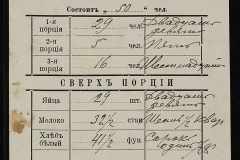 Состоитъ „50" чел.
1-я порція 29 чел. Двадцать девять
2-я порція 5 чел. Пять
3-я порція 16 чел. Шестнадцать
СВЕРХЪ ПОРЦІИ
Яйца 29 шт. Двадцать девять
Молоко 32½ стак.
Хлѣбъ бѣлый 41½ фун. Сорокъ одинъ